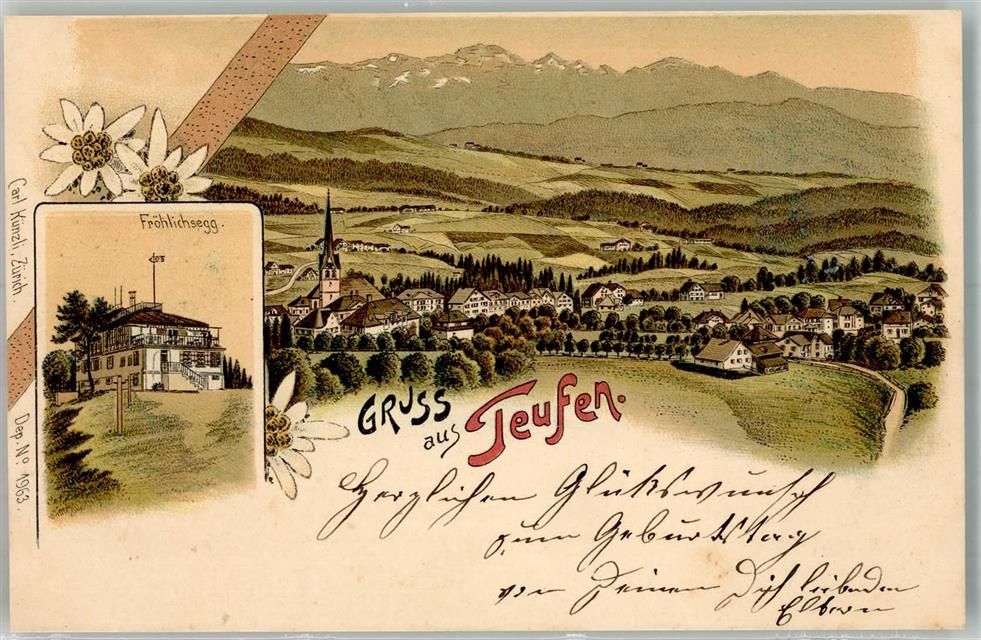 Fröhlichsegg.
Carl Künzli, Zürich.
Dep. No 1963.
GRUSS
aus Teufen.
Herzlichen Glükswunsch
zum Geburtstag
von Deinen Dich liebenden
Eltern